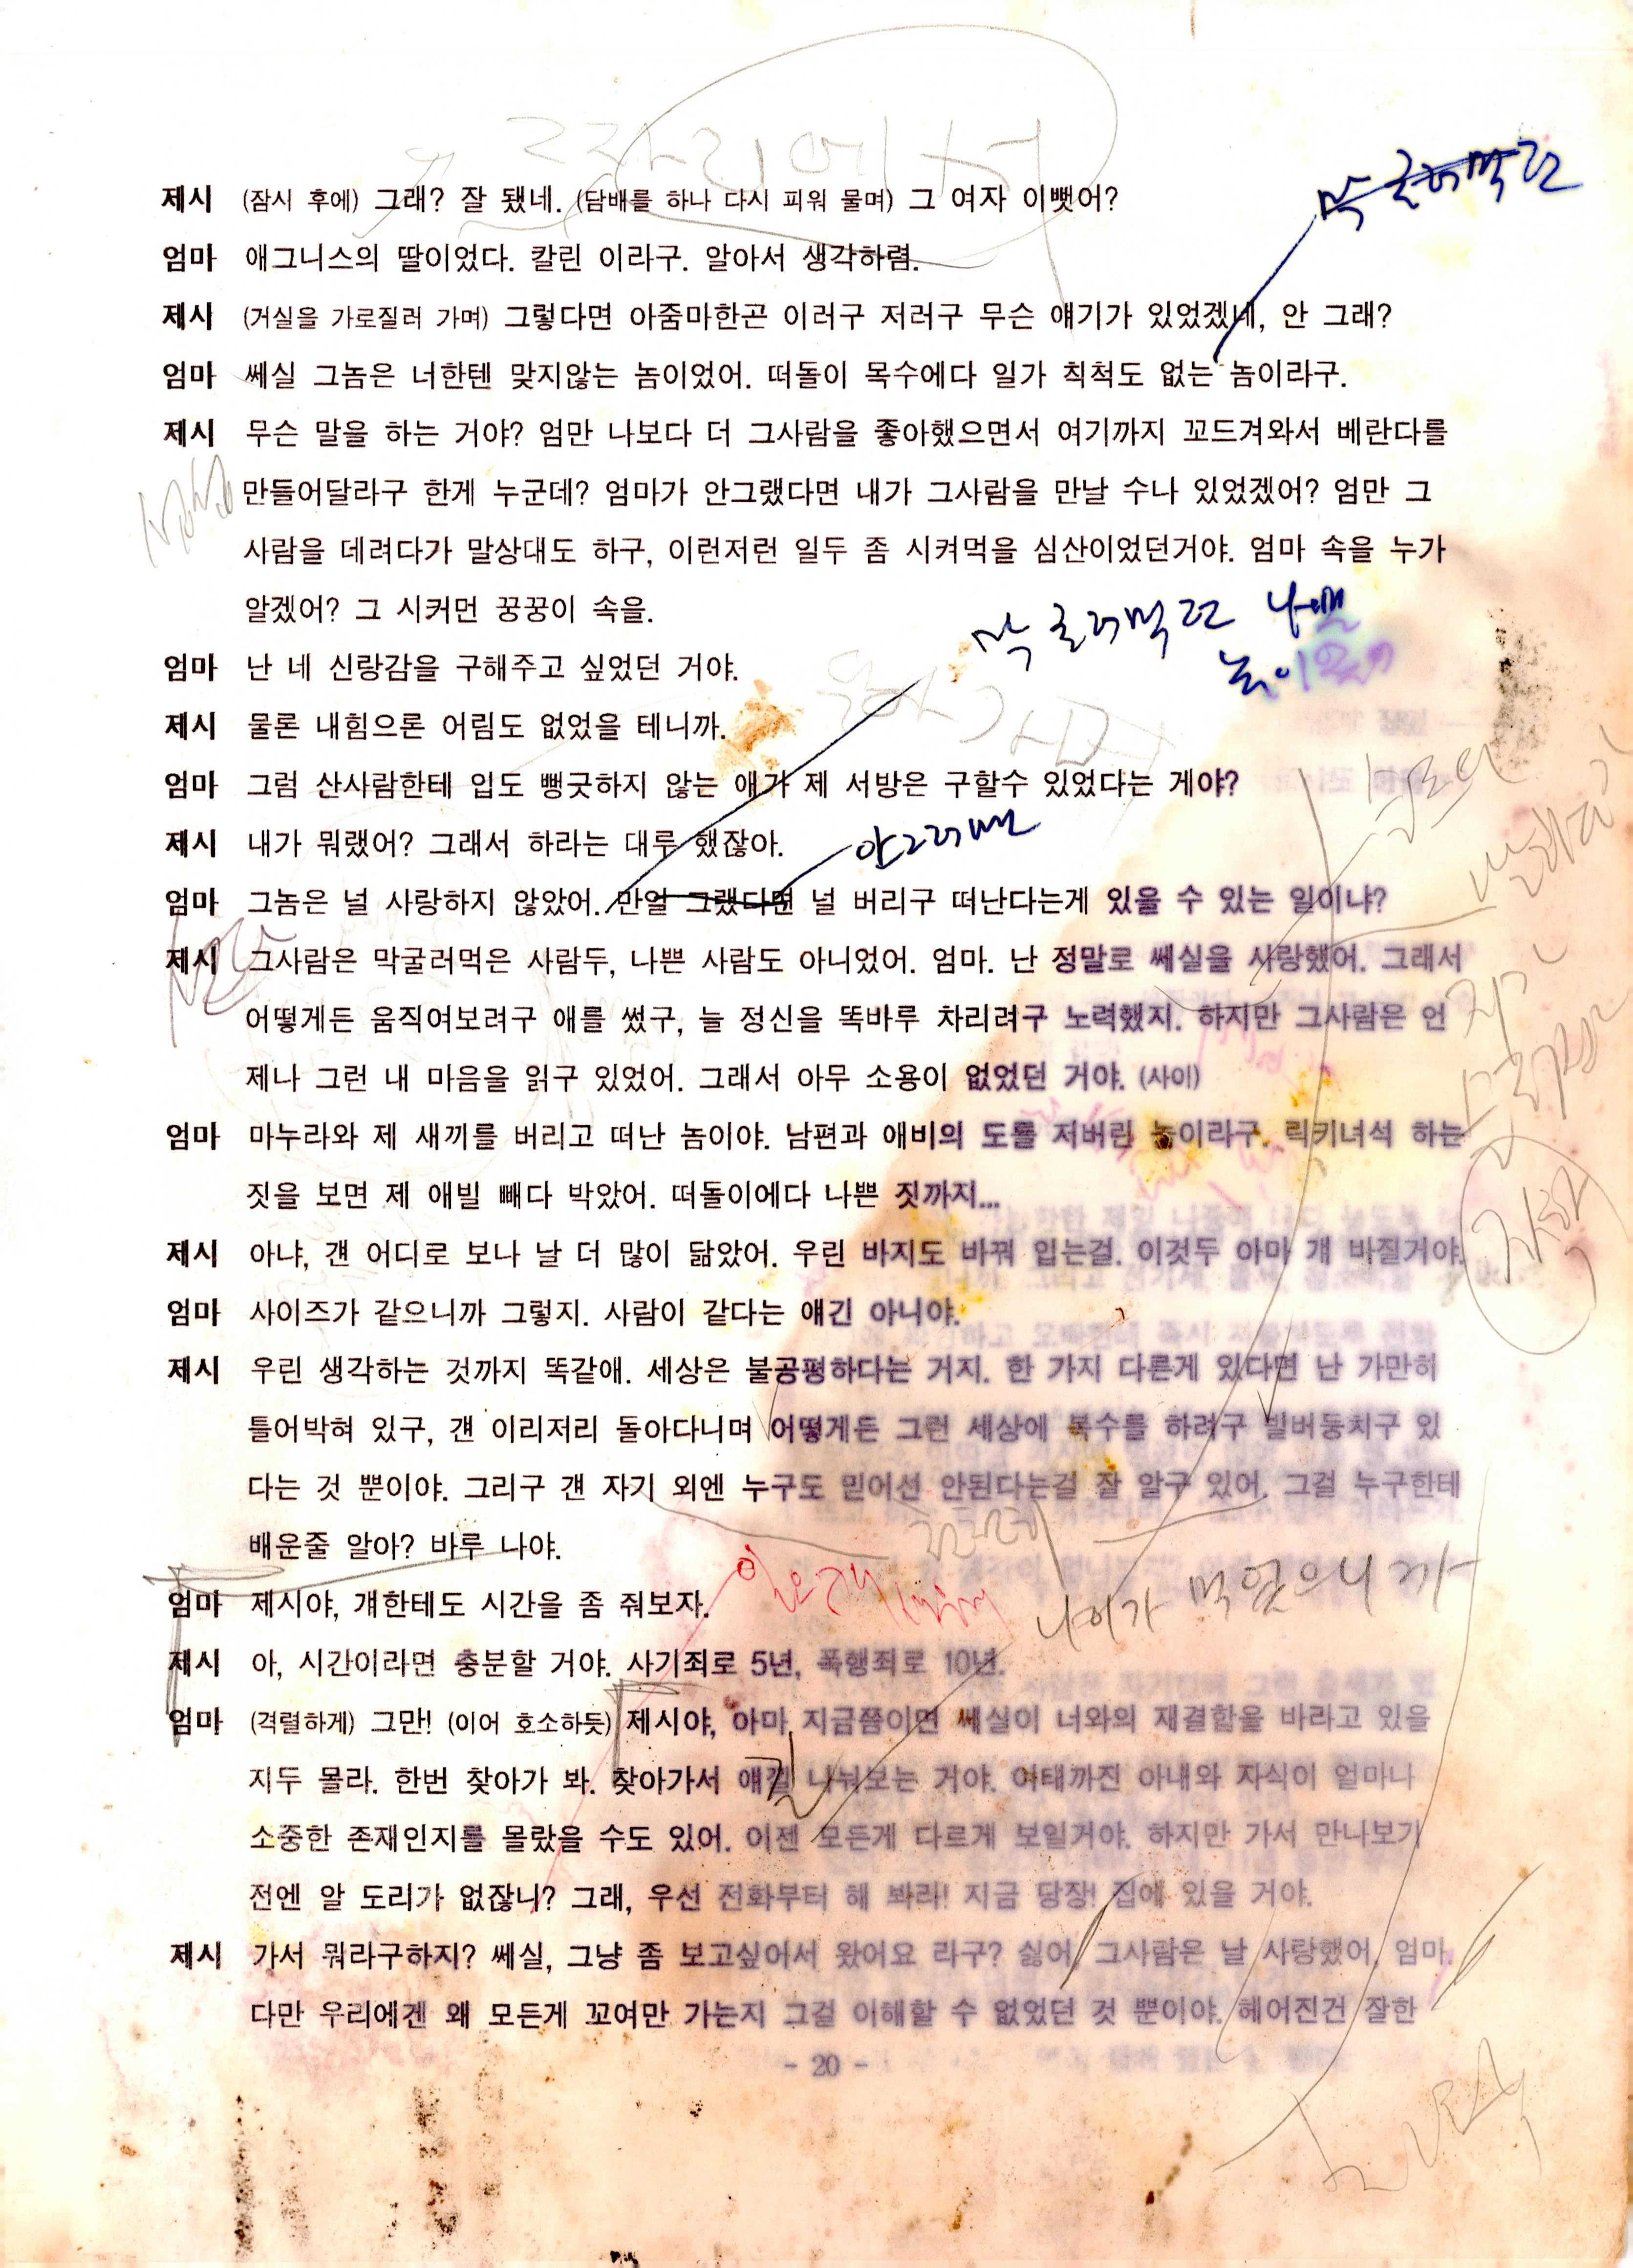 그 자리에서
막 굴러먹던
제시 (잠시 후에) 그래? 잘 됐네. (담배를 하나 다시 피워 물며) 그 여자 이뻣어?
엄마 애그니스의 딸이었다. 칼린 이라구. 알아서 생각하렴.
제시 (거실을 가로질러 가며) 그렇다면 아줌마한곤 이러구 저러구 무슨 얘기가 있었겠네, 안 그래?
엄마 쎄실 그놈은 너한텐 맞지않는 놈이었어. 떠돌이 목수에다 일가 칙척도 없는 놈이라구.
제시 무슨 말을 하는 거야? 엄만 나보다 더 그사람을 좋아했으면서 여기까지 꼬드겨와서 베란다를
만들어달라구 한게 누군데? 엄마가 안그랬다면 내가 그사람을 만날 수나 있었겠어? 엄만 그
사람을 데려다가 말상대도 하구, 이런저런 일두 좀 시켜먹을 심산이었던거야. 엄마 속을 누가
알겠어? 그 시커먼 꿍꿍이 속을.
막 굴러먹던 나쁜
놈이었어
엄마 난 네 신랑감을 구해주고 싶었던 거야.
제시 물론 내힘으론 어림도 없었을 테니까.
엄마 그럼 산사람한테 입도 뻥긋하지 않는 애가 제 서방은 구할수 있었다는 게야?
제시 내가 뭐랬어? 그래서 하라는 대루 했잖아.
안그러면
엄마 그놈은 널 사랑하지 않았어. 만일 그랬다면 널 버리구 떠난다는게 있을 수 있는 일이냐?
제시 그사람은 막굴러먹은 사람두, 나쁜 사람도 아니었어. 엄마. 난 정말로 쎄실을 사랑했어. 그래서
어떻게든 움직여보려구 애를 썼구, 늘 정신을 똑바루 차리려구 노력했지. 하지만 그사람은 언
제나 그런 내 마음을 읽구 있었어. 그래서 아무 소용이 없었던 거야. (사이)
엄마 마누라와 제 새끼를 버리고 떠난 놈이야. 남편과 애비의 도를 저버린 놈이라구. 릭키녀석 하는
짓을 보면 제 애빌 빼다 박았어. 떠돌이에다 나쁜 짓까지...
자학
제시 아냐, 걘 어디로 보나 날 더 많이 닮았어. 우린 바지도 바꿔 입는걸. 이것두 아마 걔 바질거야.
엄마 사이즈가 같으니까 그렇지. 사람이 같다는 얘긴 아니야.
제시 우린 생각하는 것까지 똑같애. 세상은 불공평하다는 거지. 한 가지 다른게 있다면 난 가만히
틀어박혀 있구, 걘 이리저리 돌아다니며 어떻게든 그런 세상에 복수를 하려구 발버둥치구 있
다는 것 뿐이야. 그리구 걘 자기 외엔 누구도 믿어선 안된다는걸 잘 알구 있어. 그걸 누구한테
배운줄 알아? 바루 나야.
나이가 먹었으니까
엄마 제시야, 걔한테도 시간을 좀 줘보자.
제시 아, 시간이라면 충분할 거야. 사기죄로 5년, 폭행죄로 10년.
엄마 (격렬하게) 그만! (이어 호소하듯) 제시야, 아마 지금쯤이면 쎄실이 너와의 재결합을 바라고 있을
지두 몰라. 한번 찾아가 봐. 찾아가서 얘길 나눠보는 거야. 여태까진 아내와 자식이 얼마나
소중한 존재인지를 몰랐을 수도 있어. 이젠 모든게 다르게 보일거야. 하지만 가서 만나보기
전엔 알 도리가 없잖니? 그래, 우선 전화부터 해 봐라! 지금 당장! 집에 있을 거야.
제시 가서 뭐라구하지? 쎄실, 그냥 좀 보고싶어서 왔어요 라구? 싫어. 그사람은 날 사랑했어. 엄마.
다만 우리에겐 왜 모든게 꼬여만 가는지 그걸 이해할 수 없었던 것 뿐이야. 헤어진건 잘한
- 20 -